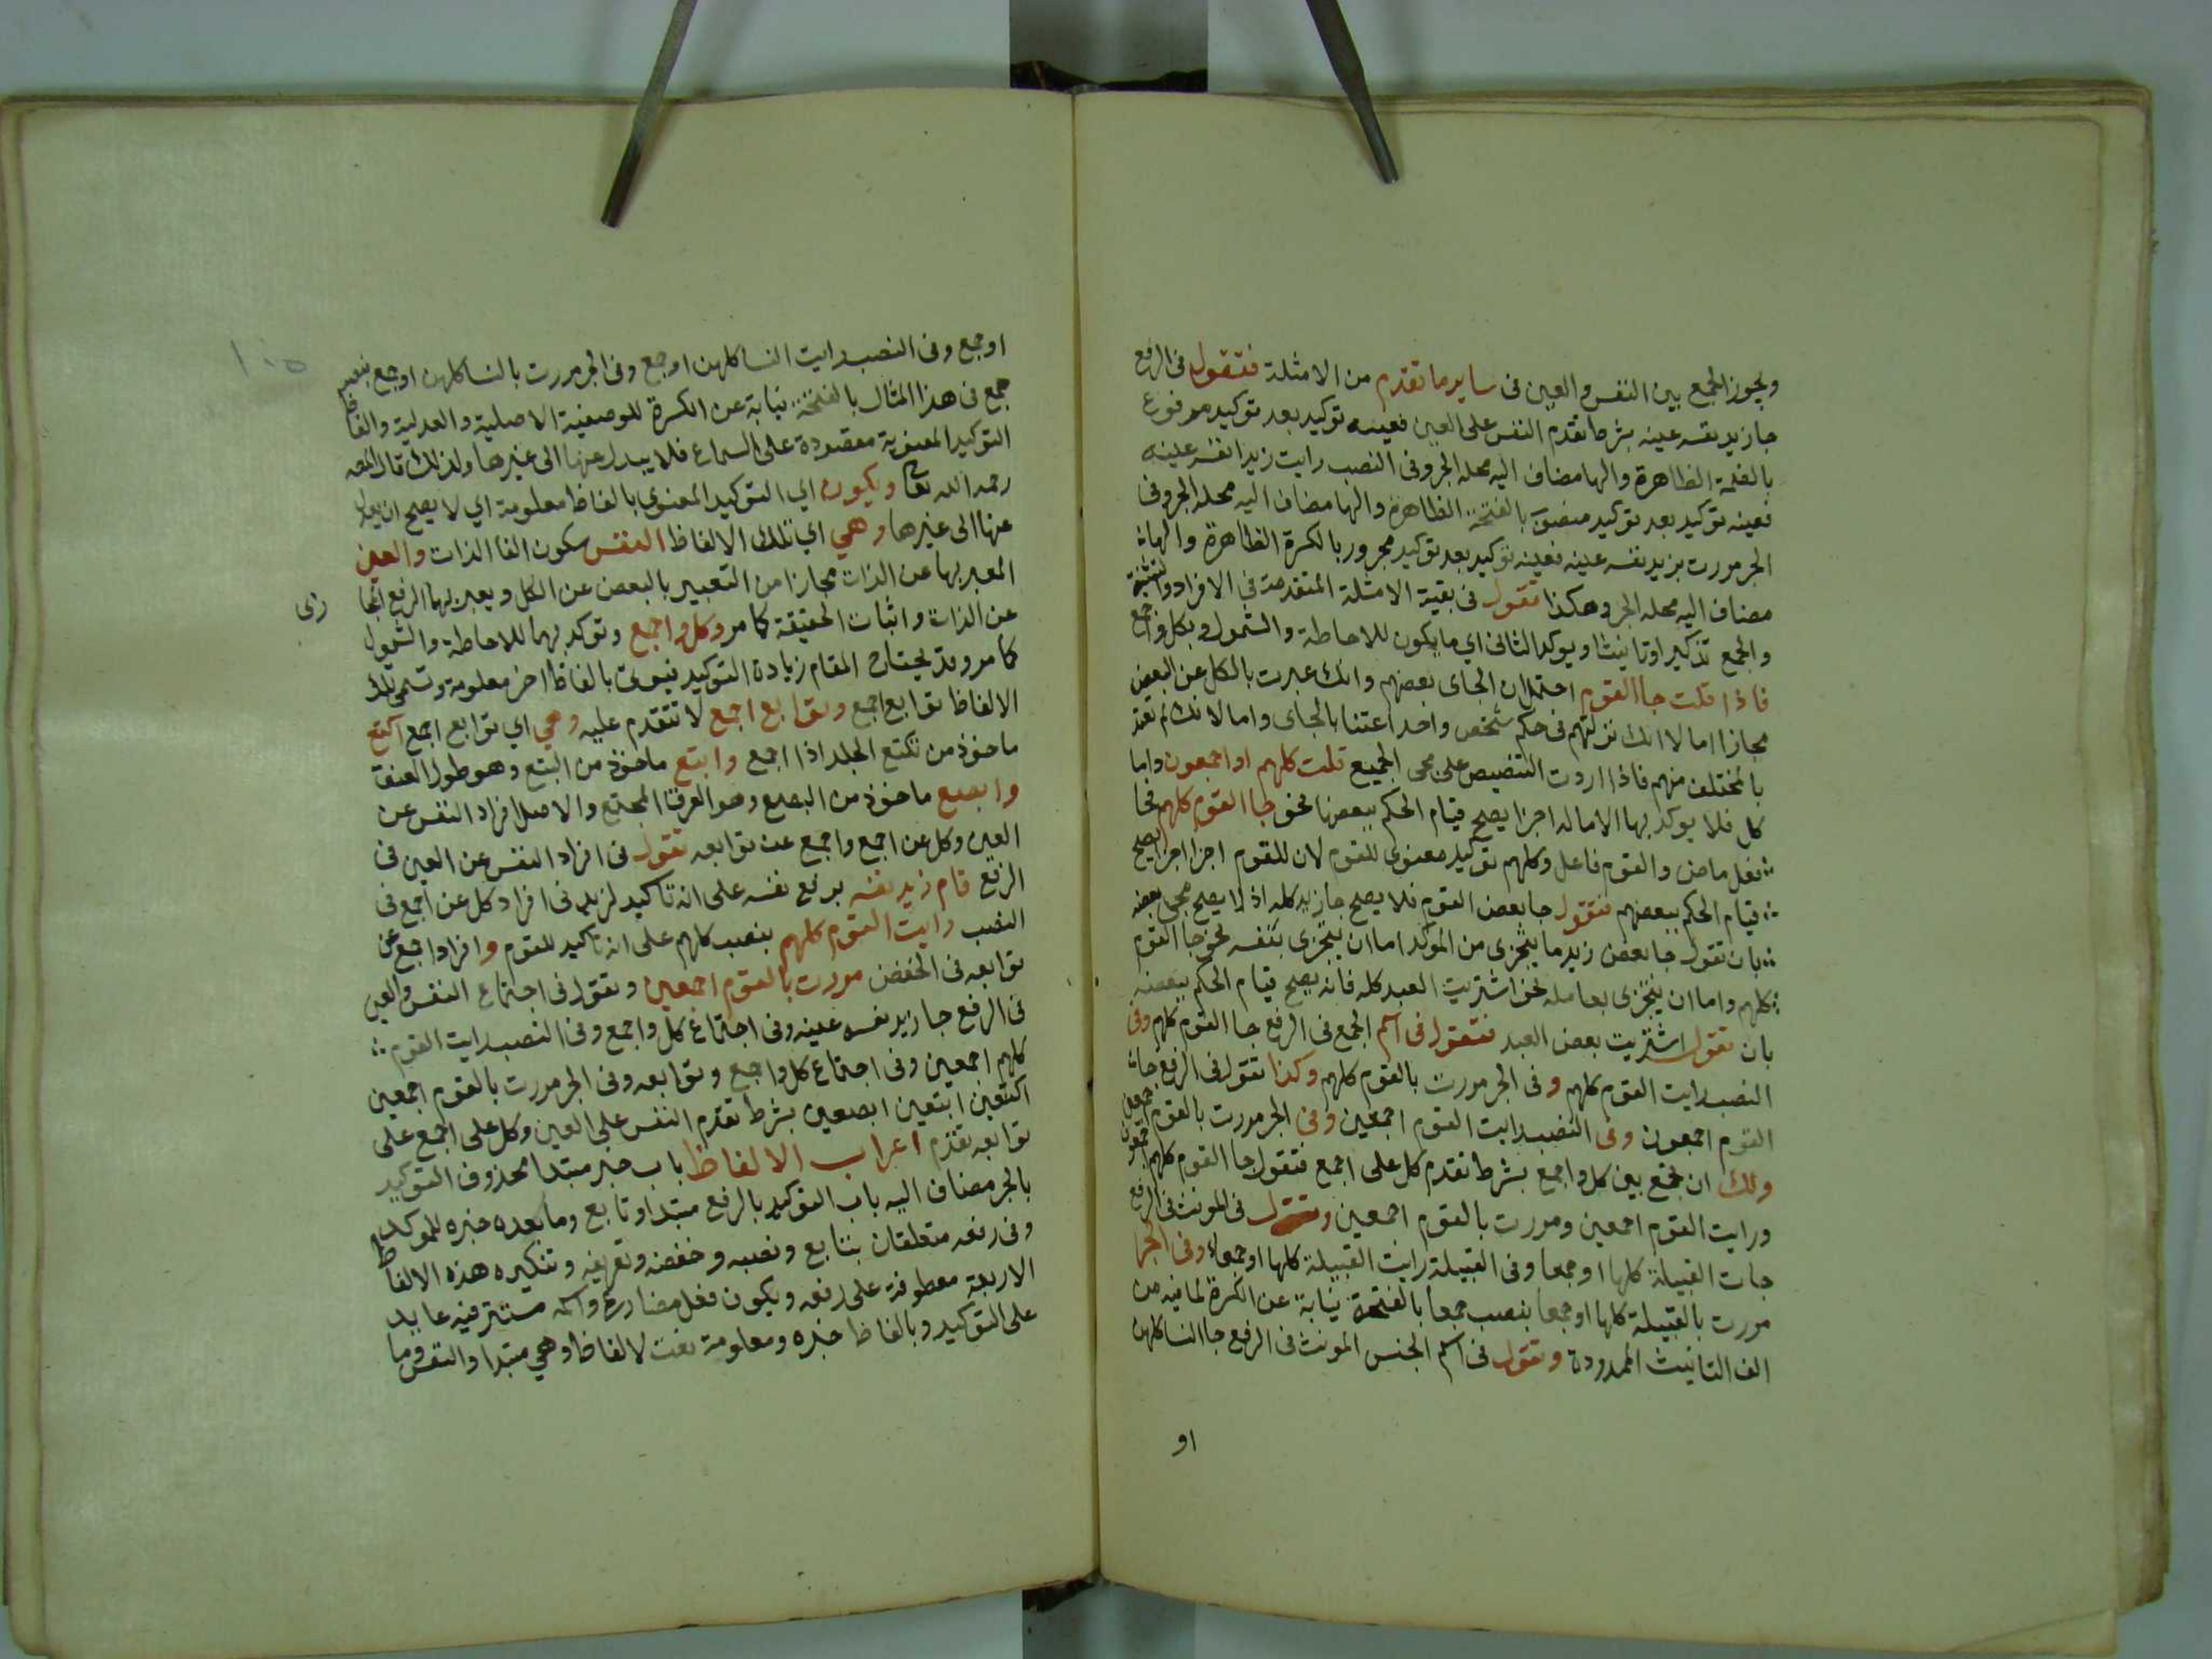 ويجوز الجمع بين النفس والعين فى ساير ما تقدم من الامثلة فتقول فى الرفع
جا زيد نفسه عينه بشرط تقدم النفس على العين فعينه توكيد بعد توكيد مرفوع
بالضمة الظاهرة والها مضاف اليه محله الجر وفى النصب رايت زيدا نفسه عينه
فعينه توكيد بعد توكيد منصوب بالفتحة الظاهرة والها مضاف اليه محله الجر وفى
الجر مررت بزيد نفسه عينه فعينه توكيد بعد توكيد مجرور بالكسرة الظاهرة والهاء
مضاف اليه محله الجر وهكذا تقول فى بقية الامثلة المتقدمة فى الافراد والتثنية
والجمع تذكيرا وتانيثا ويوكد الثانى اي ما يكون للاحاطة والشمول وبكل واجمع
فاذا قلت جا القوم احتمل ان الجاى بعضهم وانك عبرت بالكل عن البعض
مجازا اما لانك نزلتهم فى حكم شخص واحد اعتنا بالجاى واما لانك لم تعتد
بالمختلف منهم فاذا اردت التنصيص على مجى الجميع قلت كلهم او اجمعون واما
كل فلا يوكد بها الا ما له اجزا يصح قيام الحكم ببعضها نحو جا القوم كلهم فجا
فعل ماض والقوم فاعل وكلهم توكيد معنوى للقوم لان للقوم اجزا اجزا يصح
قيام الحكم ببعضهم فتقول جا بعض القوم فلا يصح جا زيد كله اذ لا يصح مجى بعضه
بان تقول جا بعض زيد ما يتجزى من الموكد اما ان يتجزى بنفسه نحو جا القوم
كلهم واما ان يتجزى بعامله نحو اشتريت العبد كله فانه يصح قيام الحكم ببعضه
بان تقول اشتريت بعض العبد فتقول فى اسم الجمع فى الرفع جا القوم كلهم وفى
النصب رايت القوم كلهم وفى الجر مررت بالقوم كلهم وكذا تقول فى الرفع جاء
القوم اجمعون وفى النصب رايت القوم اجمعين وفى الجر مررت بالقوم اجمعين
ولك ان تجمع بين كل واجمع بشرط تقدم كل على اجمع فتقول جا القوم كلهم اجمعون
ورايت القوم اجمعين ومررت بالقوم اجمعين وتقول فى المونث فى الرفع
جات القبيلة كلها او جمعا وفى القبيلة رايت القبيلة كلها او جمعاء وفى الجر
مررت بالقبيلة كلها او جمعا بنصب جمعا بالفتحة نيابة عن الكسرة لما فيه من
الف التانيث الممدودة وتقول فى اسم الجنس المونث فى الرفع جا النسا كلهن
او
او جمع وفى النصب رايت النسا كلهن او جمع وفى الجر مررت بالنسا كلهن او جمع بنصب
جمع فى هذا المثال بالفتحة نيابة عن الكسرة للوصفية الاصلية والعدلية والفاظ
التوكيد المعنوية مقصودة على السماع فلا يبدل عنها الى غيرها ولذلك قال المصـ
رحمه الله تعا ويكون اي التوكيد المعنوى بالفاظ معلومة اي لا يصح ان يعدل
عنها الى غيرها وهي اي تلك الالفاظ النفس سكون الفا الذات والعين
المعبر بها عن الذات مجازا من التعبير بالبعض عن الكل ويعبر بهما الرفع
عن الذات واثبات الحقيقة كما مر وكل واجمع وتوكد بهما للاحاطة والشمول
كما مر وقد يحتاج المقام زيادة التوكيد فيوتى بالفاظ اخر معلومة وتسمى تلك
الالفاظ توابع اجمع وتوابع اجمع لا تتقدم عليه وهي اي توابع اجمع اكتع
ماخوذ من تكتع الجلد اذا اجمع وابتع ماخوذ من البتع وهو طول العنق
وابصع ماخوذ من البصع وهو العرق المجتمع والاصل افراد النفس عن
العين وكل عن اجمع واجمع عن توابعه تقول فى افراد النفس عن العين فى
الرفع قام زيد نفسه برفع نفسه على انه تاكيد لزيد فى افراد كل عن اجمع فى
النصب رايت القوم كلهم بنصب كلهم على انه تاكيد للقوم وافراد اجمع عن
توابعه فى الخفض مررت بالقوم اجمعين وتقول فى اجتماع النفس والعين
فى الرفع جا زيد نفسه عينه وفى اجتماع كل واجمع وفى النصب رايت القوم
كلهم اجمعين وفى اجتماع كل واجمع وتوابعه وفى الجر مررت بالقوم اجمعين
اكتعين ابتعين ابصعين بشرط تقدم النفس على العين وكل على اجمع على
توابعه تقدم اعراب الالفاظ باب خبر مبتدا محذوف التوكيد
بالجر مضاف اليه باب التوكيد بالرفع مبتدا وتابع وما بعده خبره للموكد
وفى رفعه متعلقان بتابع ونصبه وخفضه وتعريفه وتنكيره هذه الالفاظ
الاربعة معطوفة على رفعه ويكون فعل مضارع واسمه مستتر فيه عايد
على التوكيد وبالفاظ خبره ومعلومة نعت لالفاظ وهي مبتدا والنفس وما